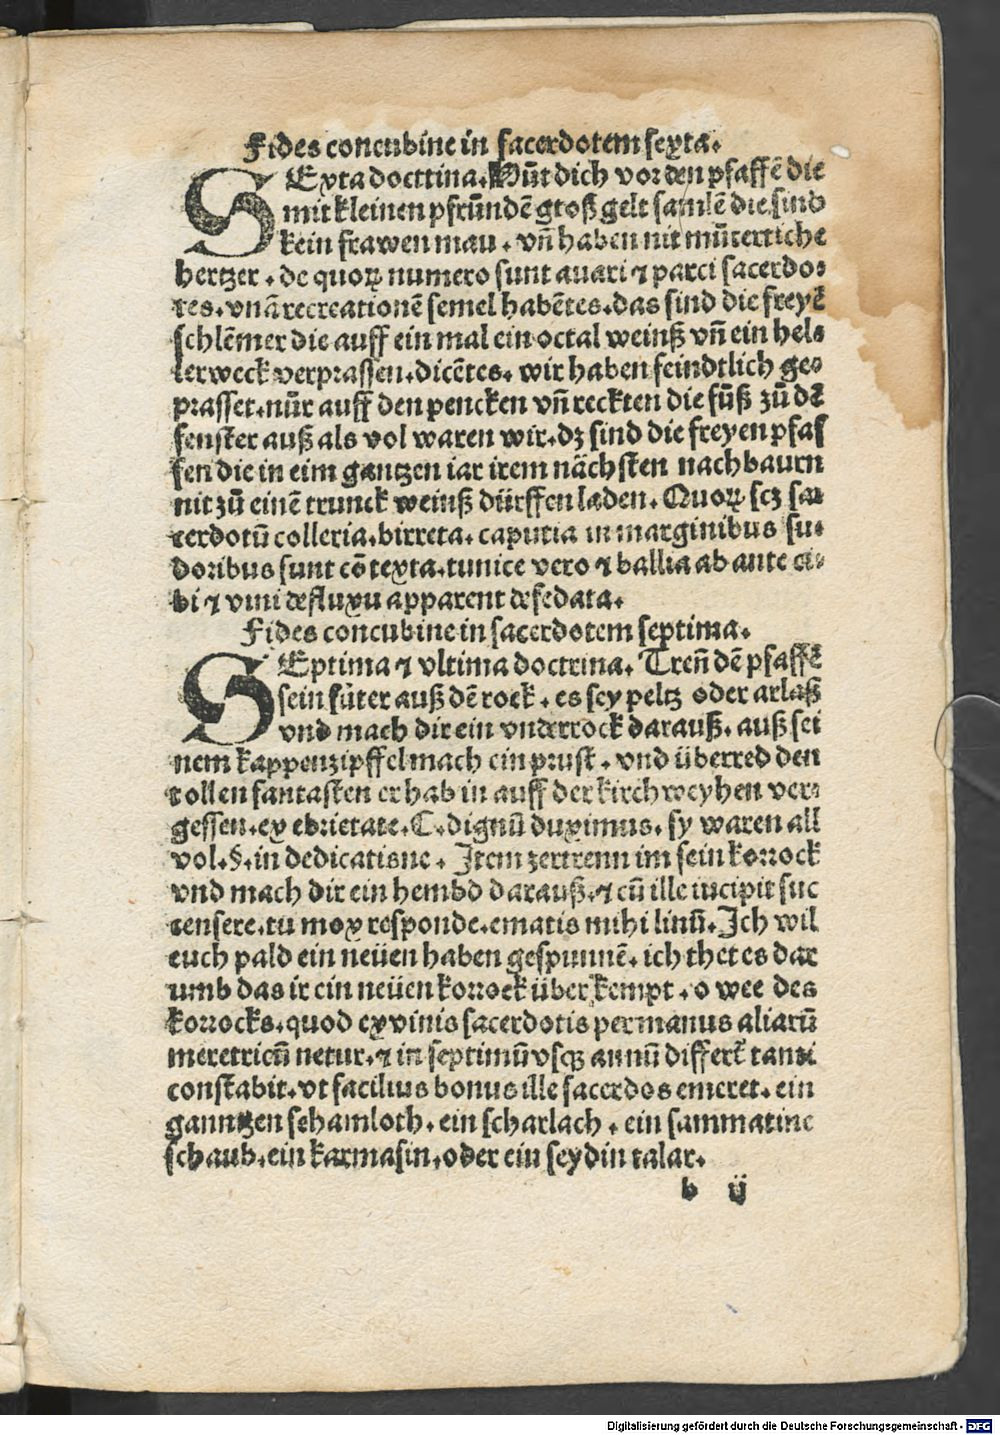 Fides concubine in sacerdotem sexta.
SExta docttina. Hüt dich vor den pfaffē die
mit kleinen pfründē groß gelt samlē die sind
kein frawen man. vñ haben nit mütertiche
hertzer. de quoꝝ numero sunt auari ⁊ parci sacerdo⸗
tes. vnā recreationē semel habētes. das sind die freyē
schlēmer die auff ein mal ein octal weinß vñ ein hel⸗
lerweck verprassen. dicētes. wir haben feindtlich ge⸗
prasset. nūr auff den pencken vñ reckten die füß zū dē
fenster auß als vol waren wir. dz sind die freyen pfaf
fen die in eim gantzen iar irem nächsten nachbaurn
nit zū einē trunck weinß dürffen laden. Quoꝝ scz sa⸗
cerdotū colleria. birreta. caputia in marginibus su⸗
doribus sunt cōtexta. tunice vero ⁊ ballia ab ante ci⸗
bi ⁊ vini defluxu apparent defedata.
Fides concubine in sacerdotem septima.
SEptima ⁊ vltima doctrina. Treñ dē pfaffē
sein füter auß dē rock. es sey peltz oder arlaß
vnd mach dir ein vnderrock darauß. auß sei
nem kappenzipffel mach ein prust. vnd überred den
tollen fantasten er hab in auff der kirchweyhen ver⸗
gessen. ex ebrietate. C. dignū duximus. sy waren all
vol. §. in dedicatisne. Item zertrenn im sein korrock
vnd mach dir ein hembd darauß. ⁊ cū ille incipit suc
censere. tu mox responde. ematis mihi linū. Ich wil
euch pald ein neüen haben gespunnē. ich thet es dar
umb das ir ein neüen korrock überkempt. o wee des
korrocks. quod ex vinis sacerdotis per manus aliarū
meretricū netur. ⁊ in septimū vsqꝫ annū differt̄ tanti
constabit. vt facilius bonus ille sacerdos emeret. ein
ganntzen schamloth. ein scharlach. ein sammatine
schaub. ein karmasin. oder ein seydin talar.
b ij
Digitalisierung gefördert durch die Deutsche Forschungsgemeinschaft - DFG